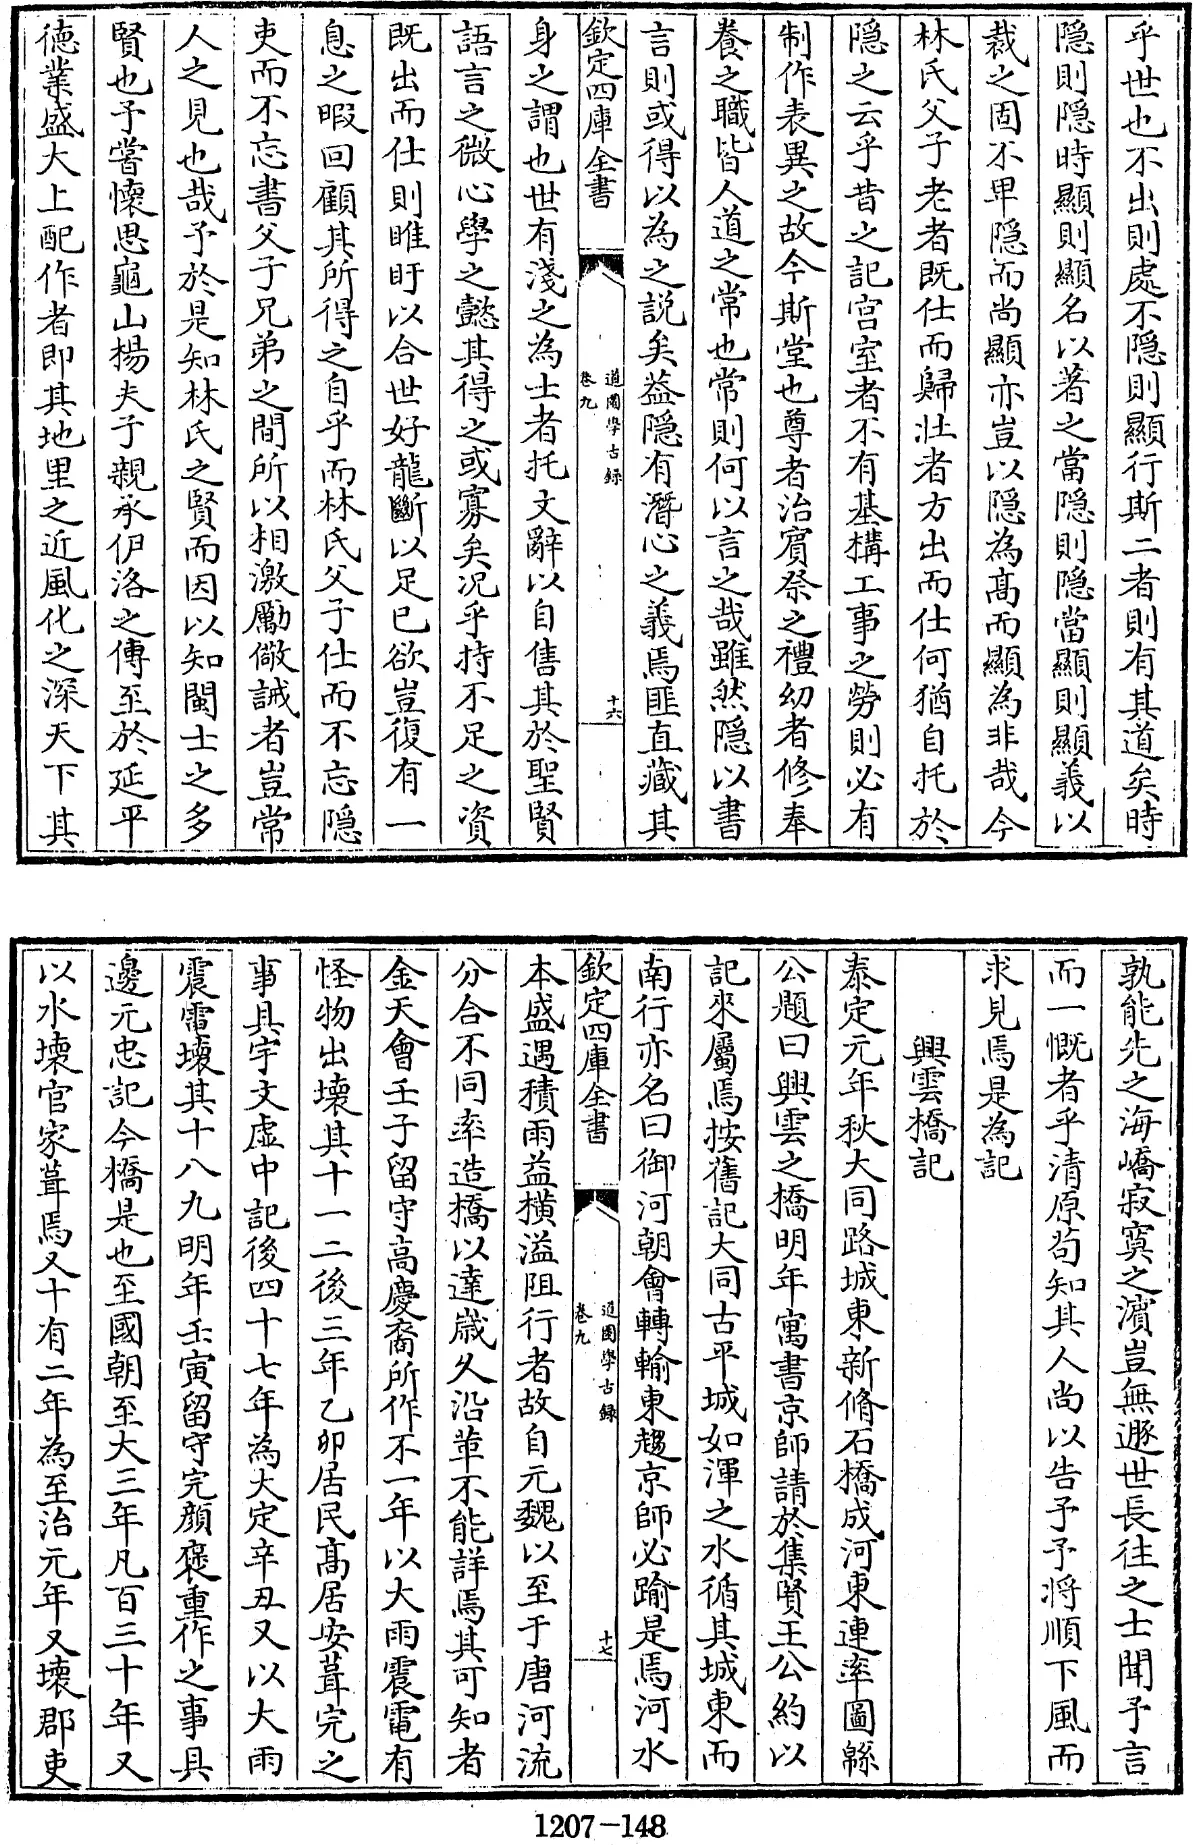 乎世也不出則處不隠則顯行斯二者則有其道矣時
隠則隠時顯則顯名以著之當隠則隠當顯則顯義以
裁之固不卑隠而尚顯亦豈以隠為髙而顯為非哉今
林氏父子老者既仕而歸壯者方出而仕何猶自托於
隠之云乎昔之記宫室者不有基構工事之勞則必有
制作表異之故今斯堂也尊者治賓祭之禮幼者修奉
養之職皆人道之常也常則何以言之哉雖然隠以書
言則或得以為之説矣葢隠有潛心之義焉匪直藏其
欽定四庫全書
道園學古録
卷九
十六
身之謂也世有淺之為士者托文辭以自售其於聖賢
語言之微心學之懿其得之或寡矣况乎持不足之資
既出而仕則睢盱以合世好龍斷以足已欲豈復有一
息之暇回顧其所得之自乎而林氏父子仕而不忘隠
吏而不忘書父子兄弟之間所以相激勵儆誡者豈常
人之見也哉予於是知林氏之賢而因以知閩士之多
賢也予嘗懷思龜山楊夫子親承伊洛之傳至於延平
德業盛大上配作者即其地里之近風化之深天下其
孰能先之海嶠寂寞之濵豈無遯世長往之士聞予言
而一慨者乎清原茍知其人尚以告予予将順下風而
求見焉是為記
興雲橋記
泰定元年秋大同路城東新脩石橋成河東連率圖緜
公題曰興雲之橋明年寓書京師請於集賢王公約以
記來屬焉按舊記大同古平城如渾之水循其城東而
南行亦名曰御河朝會轉輸東趨京師必踰是焉河水
欽定四庫全書
道園學古録
卷九
十七
本盛遇積雨益横溢阻行者故自元魏以至于唐河流
分合不同率造橋以達歳久沿革不能詳焉其可知者
金天會壬子留守高慶裔所作不一年以大雨震電有
怪物出壊其十一二後三年乙卯居民髙居安葺完之
事具宇文虚中記後四十七年為大定辛丑又以大雨
震雷壊其十八九明年壬寅留守完顔褒重作之事具
邊元忠記今橋是也至國朝至大三年凡百三十年又
以水壊官家葺焉又十有二年為至治元年又壊郡吏
1207-148